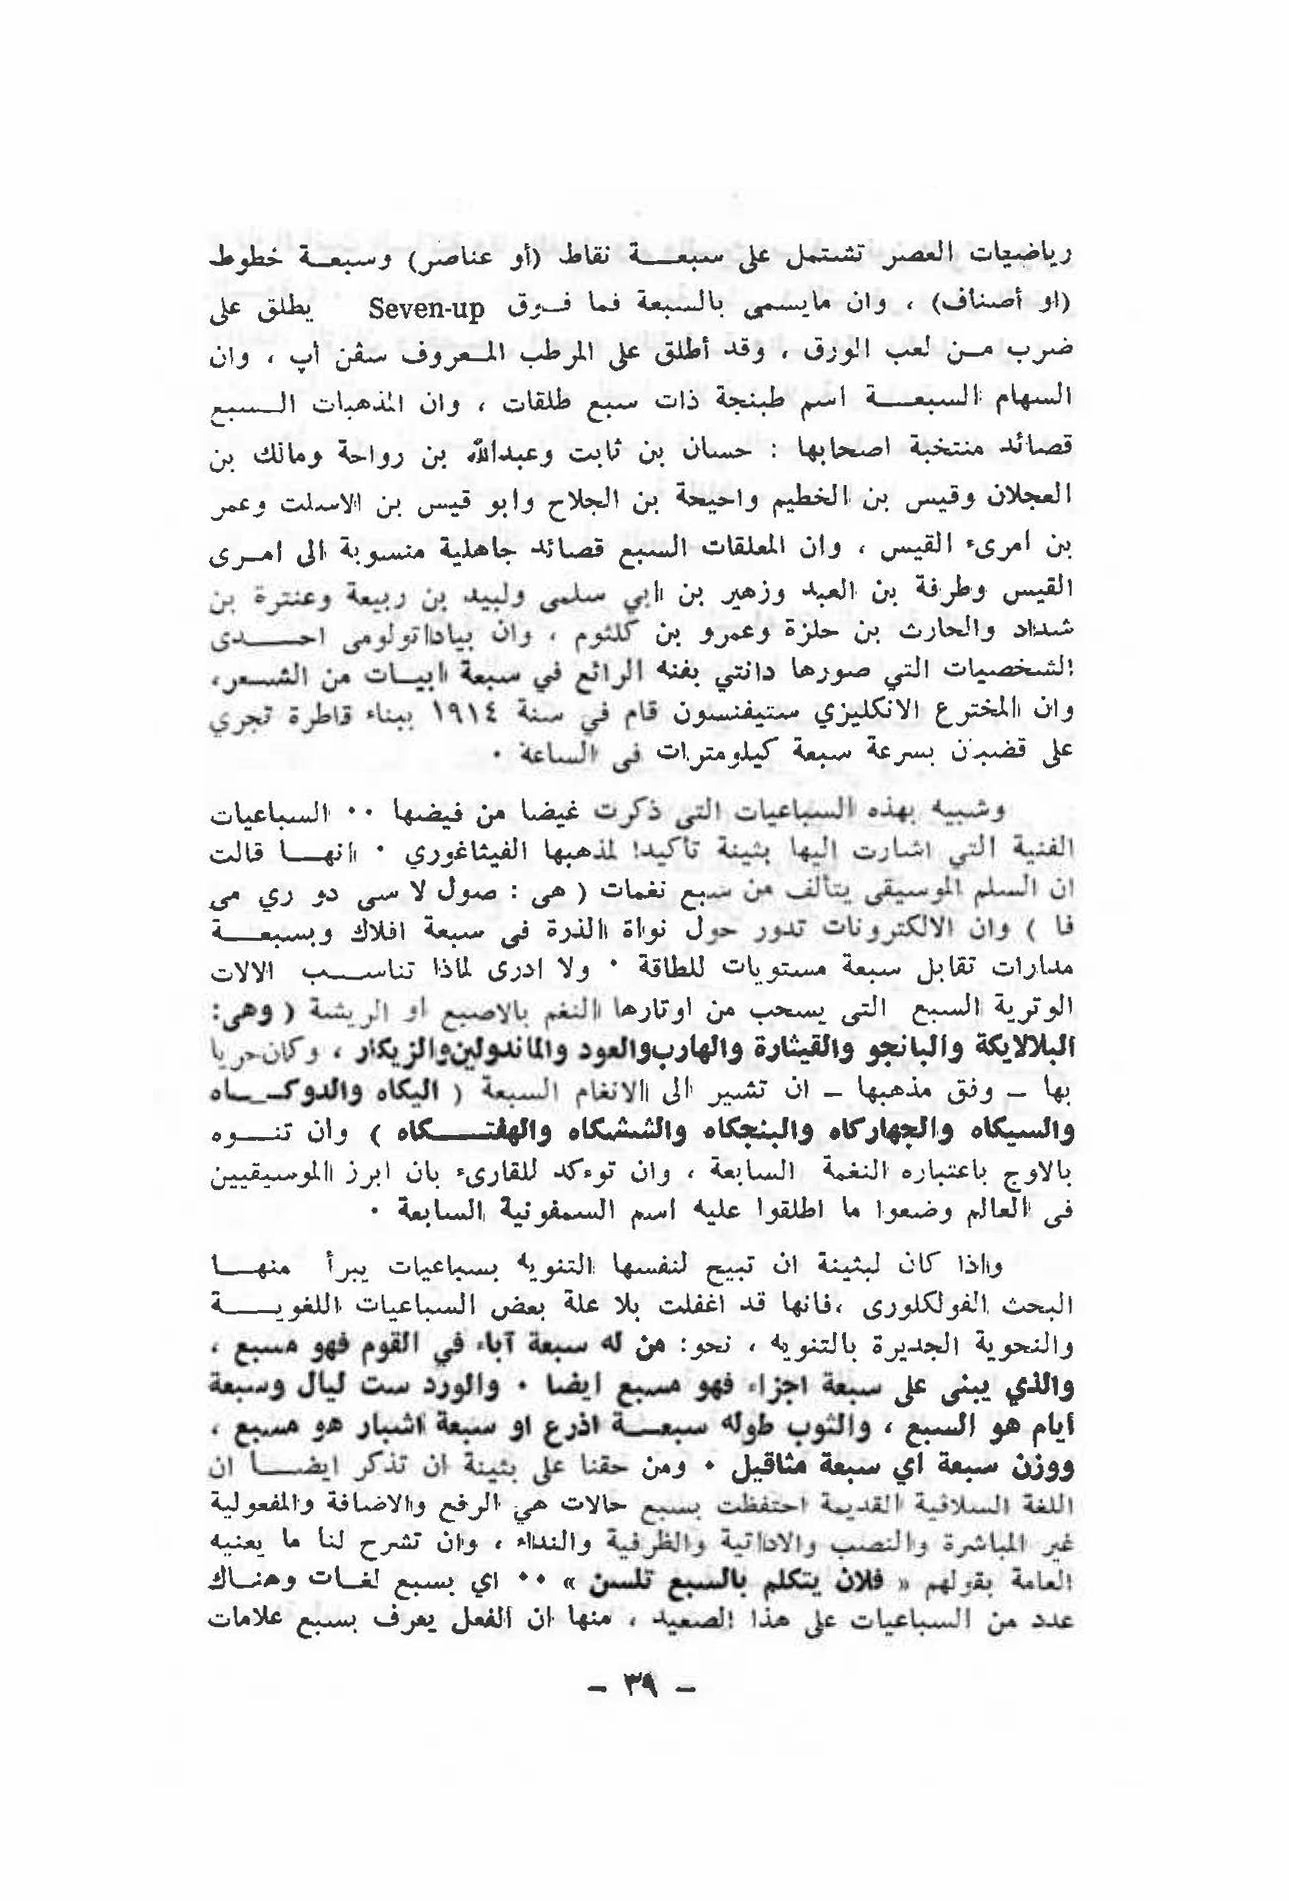 رياضيات العصر تشتمل على سبعة نقاط (أو عناصر) وسبعة خطوط
(او أصناف) ، وان مايسمى بالسبعة فما فوق Seven-up يطلق على
ضرب من لعب الورق ، وقد أطلق على المرطب المعروف سڤن أپ ، وان
السهام السبعة اسم طبنجة ذات سبع طلقات ، وان المذهبات السبع
قصائد منتخبة اصحابها : حسان بن ثابت وعبدالله بن رواحة ومالك بن
العجلان وقيس بن الخطيم واحيحة بن الجلاح وابو قيس بن الاسلت وعمر
بن امرىء القيس ، وان المعلقات السبع قصائد جاهلية منسوبة الى امرى
القيس وطرفة بن العبد وزهير بن ابي سلمى ولبيد بن ربيعة وعنترة بن
شداد والحارث بن حلزة وعمرو بن كلثوم ، وان بياداتولومى احدى
الشخصيات التي صورها دانتي بفنه الرائع في سبعة ابيات من الشعر،
وان المخترع الانكليزي ستيفنسون قام في سنة ١٩١٤ ببناء قاطرة تجري
على قضبان بسرعة سبعة كيلومترات فى الساعة ٠
وشبيه بهذه السباعيات التى ذكرت غيضا من فيضها ٠٠ السباعيات
الفنية التي اشارت اليها بثينة تأكيدا لمذهبها الفيثاغوري ٠ انها قالت
ان السلم الموسيقى يتألف من سبع نغمات ( هى : صول لا سى دو ري مى
فا ) وان الالكترونات تدور حول نواة الذرة فى سبعة افلاك وبسبعة
مدارات تقابل سبعة مستويات للطاقة ٠ ولا ادرى لماذا تناسب الالات
الوترية السبع التى يسحب من اوتارها النغم بالاصبع او الريشة ( وهى:
البلالايكة والبانجو والقيثارة والهارب والعود والماندولين والزيكار ، وكان حريا
بها – وفق مذهبها – ان تشير الى الانغام السبعة ( اليكاه والدوكاه
والسيكاه والجهاركاه والبنجكاه والششكاه والهفتكاه ) وان تنوه
بالاوج باعتباره النغمة السابعة ، وان توءكد للقارىء بان ابرز الموسيقيين
فى العالم وضعوا ما اطلقوا عليه اسم السمفونية السابعة ٠
واذا كان لبثينة ان تبيح لنفسها التنويه بسباعيات يبرأ منها
البحث الفولكلورى ،فانها قد اغفلت بلا علة بعض السباعيات اللغوية
والنحوية الجديرة بالتنويه ، نحو: من له سبعة آباء في القوم فهو مسبع ،
والذي يبنى على سبعة اجزاء فهو مسبع ايضا ٠ والورد ست ليال وسبعة
أيام هو السبع ، والثوب طوله سبعة اذرع او سبعة اشبار هو مسبع ،
ووزن سبعة اي سبعة مثاقيل ٠ ومن حقنا على بثينة ان تذكر ايضا ان
اللغة السلافية القديمة احتفظت بسبع حالات هي الرفع والاضافة والمفعولية
غير المباشرة والنصب والاداتية والظرفية والنداء ، وان تشرح لنا ما يعنيه
العامة بقولهم « فلان يتكلم بالسبع تلسن » ٠٠ اي بسبع لغات وهناك
عدد من السباعيات على هذا الصعيد ، منها ان الفعل يعرف بسبع علامات
– ٣٩ –